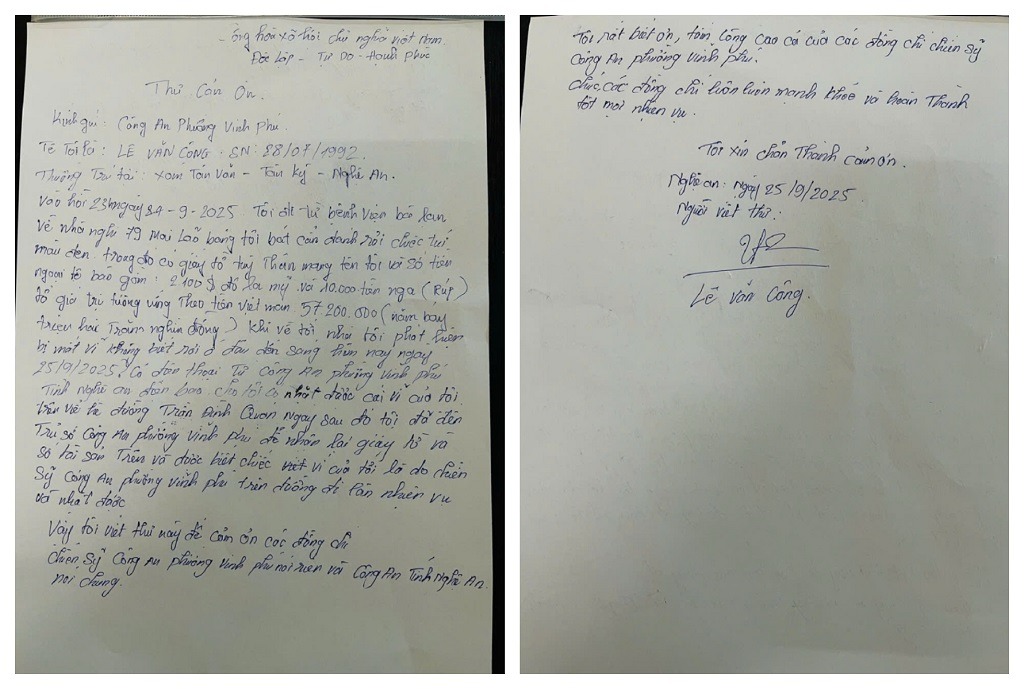 Cộng hoà xã hội chủ nghĩa việt Nam
Độc Lập - Tự Do - Hạnh Phúc
Thư Cảm Ơn.
Kính gửi: Công An Phường Vinh Phú.
Tê Tôi là: LÊ VĂN CÔNG. SN: 28/07/1992.
Thường Trú tại: xóm Tân Văn - Tân Kỳ - Nghệ An.
Vào hồi 23h ngày 24-9-2025 Tôi đi từ bệnh viện ba lan
về nhà nghỉ 79 Mai Lão bạng tôi bất cẩn đánh rơi chiếc túi
màu đen. trong đó có giấy tờ tuỳ Thân mang tên tôi và số tiền
ngoại tệ bao gồm: 2.100 $ đô la mỹ và 10.000 tiền nga (Rúp)
tổ giá trị tương ứng Theo tiền việt nam 57.200.000 (năm bay
triệu hai Trăm nghìn đồng) khi về tới nhà tôi phát hiện
bị mất ví không biết rơi ở đâu đến sang hôm nay ngày
25/9/2025. Có điện thoại Từ Công An phường vinh phú
Tỉnh Nghệ an điện bao cho tôi có nhặt được cái ví của tôi
trên vỉa hè đường Trần Đình Quan ngay sau đó tôi đã đến
Trụ sở Công An phường vinh phú để nhận lại giấy tờ và
số tài sản Trên và được biết chiếc ví của tôi là do chiến
Sỹ Công An phường vinh phú trên đường đi làn nhiện vụ
và nhặt được
Vậy tôi viết thư này để cảm ơn các đồng chí
chiến Sỹ Công An phường vinh phú nói và Công An Tỉnh Nghệ An.
nói chung.
Tôi rất biết ơn, tấm lòng cao cả của các đồng chí chiến sỹ
Công An phường vinh phú.
chúc các đồng chí luôn luôn mạnh khoẻ và hoàn Thành
tốt mọi nhiện vụ.
Tôi xin chân Thành cảm ơn.
Nghệ an: ngày 25/9/2025
Người viết thư.
Lê Văn Công.